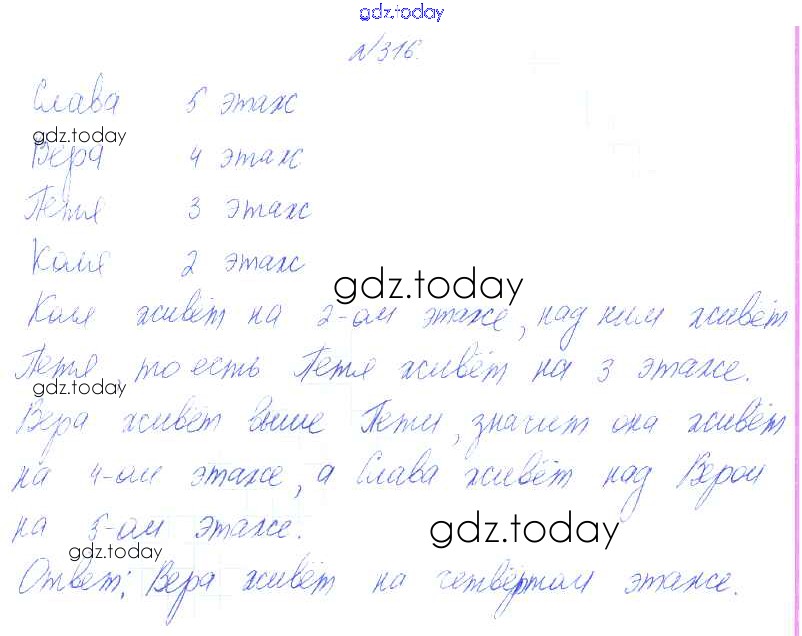 gdz.today
№316.
Слава 5 этаж
gdz.today
Вера 4 этаж
Петя 3 этаж
Коля 2 этаж
gdz.today
Коля живёт на 2-ом этаже, над ним живёт
Петя, то есть Петя живёт на 3 этаже.
gdz.today
Вера живёт выше Пети, значит она живёт
на 4-ом этаже, а Слава живёт над Верой
на 5-ом этаже.
gdz.today
gdz.today
Ответ: Вера живёт на четвёртом этаже.